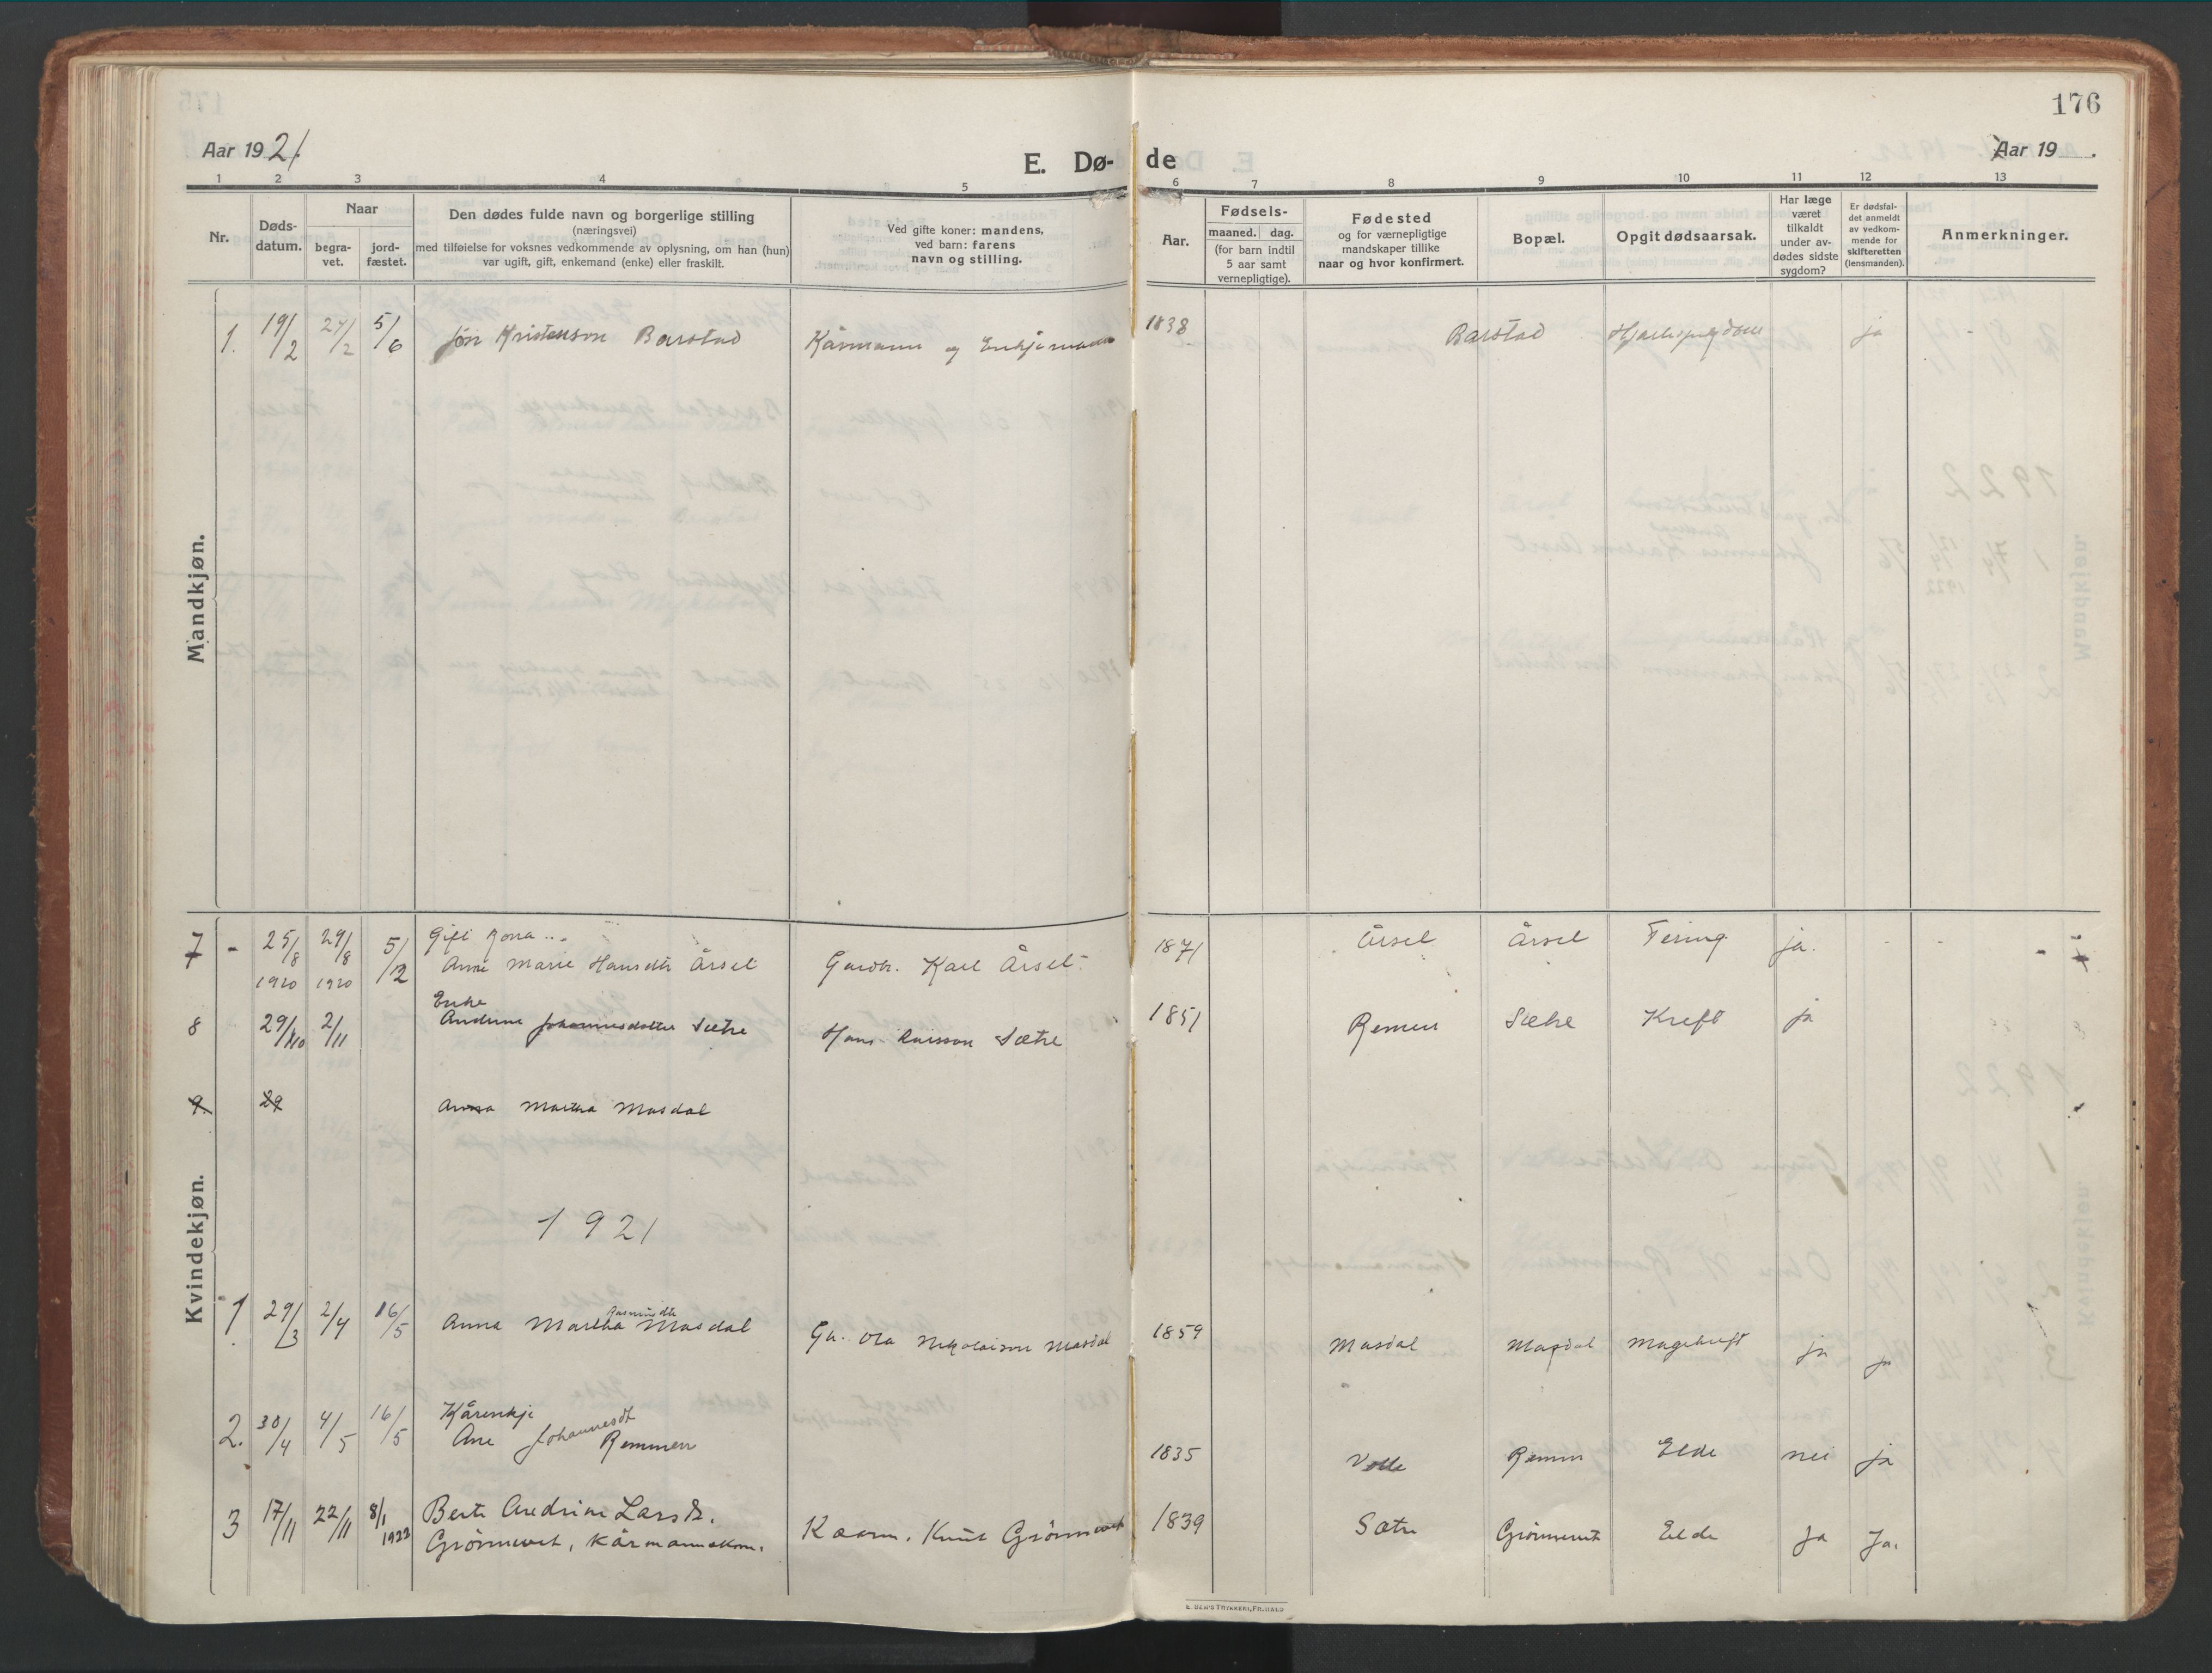 176
Aar 1921.
E. Dø-
de
Aar 19 .
1 2 3 4 5 6 7 8 9 10 11 12 13
Nr.
Døds-
datum.
Naar
begra-
vet.
jord-
fæstet.
Den dødes fulde navn og borgerlige stilling
(næringsvei)
med tilføielse for voksnes vedkommende av oplysning, om han (hun)
var ugift, gift, enkemand (enke) eller fraskilt.
Ved gifte koner: mandens,
ved barn: farens
navn og stilling.
Aar.
Fødsels-
maaned. dag.
(for barn indtil
5 aar samt
vernepligtige).
Fødested
og for værnepligtige
mandskaper tillike
naar og hvor konfirmert.
Bopæl.
Opgit dødsaarsak.
Har læge
været
tilkaldt
under av-
dødes sidste
sygdom?
Er dødsfal-
det anmeldt
av vedkom-
mende for
skifteretten
(lensmanden).
Anmerkninger.
Mandkjøn.
1. 19/2 5/6 Jon Kristensson Barstad Kårmann og 1838 Barstad ja -
Kvindekjøn.
7 - 25/8 1920 29/8 1920 5/12 Gift kona
Ane Marie Hansdtr Årset Gardbr. Karl Årset 1871 Årset Årset Tering ja. - -
8 29/10 2/11 Enke
Andrine Johannesdotter Sætre Hans Larsson Sætre 1851 Remen Sætre Kreft ja
9. 29 Anna Martha Masdal
1921
1 29/3 2/4 16/5 Anna Martha Rasmusdtr Masdal Ga. Ola Nikolaison Masdal 1859 Masdal Masdal Magekreft ja ja
2. 30/4 4/5 16/5 Kårenkje
Ane Johannesdt Remmen 1835 Remen Elde nei ja
3 17/11 22/11 8/1 1922 Berte Andrine Larsdt.
Grönnevet, kårmannskone. Kaarm. Knut Grönnevet 1839 Sætre Grönnevet Elde Ja Ja.
E. SEM'S TRYKKERI, FR.HALD